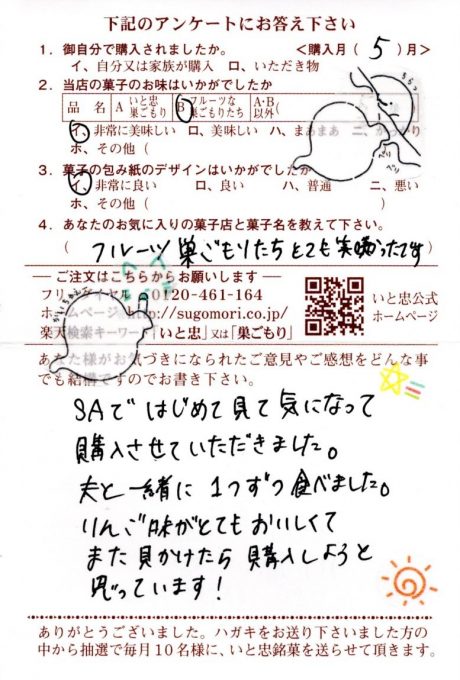 下記のアンケートにお答え下さい
1．御自分で購入されましたか。 ＜購入月（ 5 ）月＞
イ、自分又は家族が購入 ロ、いただき物
2．当店の菓子のお味はいかがでしたか
品 名 A いと忠巣ごもり B フルーツな巣ごもりたち A・B以外（
イ、非常に美味しい ロ、美味しい ハ、まあまあ ニ、
ホ、その他（ ）
3．菓子の包み紙のデザインはいかがでしたか
イ、非常に良い ロ、良い ハ、普通 ニ、悪い
ホ、その他（ ）
4．あなたのお気に入りの菓子店と菓子名を教えて下さい。
（ フルーツ巣ごもりたちとても美味かったです
― ご注文はこちらからお願いします ―
フリーダイヤル 0120-461-164
ホームページ http://sugomori.co.jp/
楽天検索キーワード「いと忠」又は「巣ごもり」
いと忠公式
ホームページ
あなた様がお気づきになられたご意見やご感想をどんな事
でも結構ですのでお書き下さい。
SAではじめて見て気になって
購入させていただきました。
夫と一緒に 1つずつ食べました。
りんご味がとてもおいしくて
また見かけたら購入しようと
思っています！
ありがとうございました。ハガキをお送り下さいました方の
中から抽選で毎月10名様に、いと忠銘菓を送らせて頂きます。